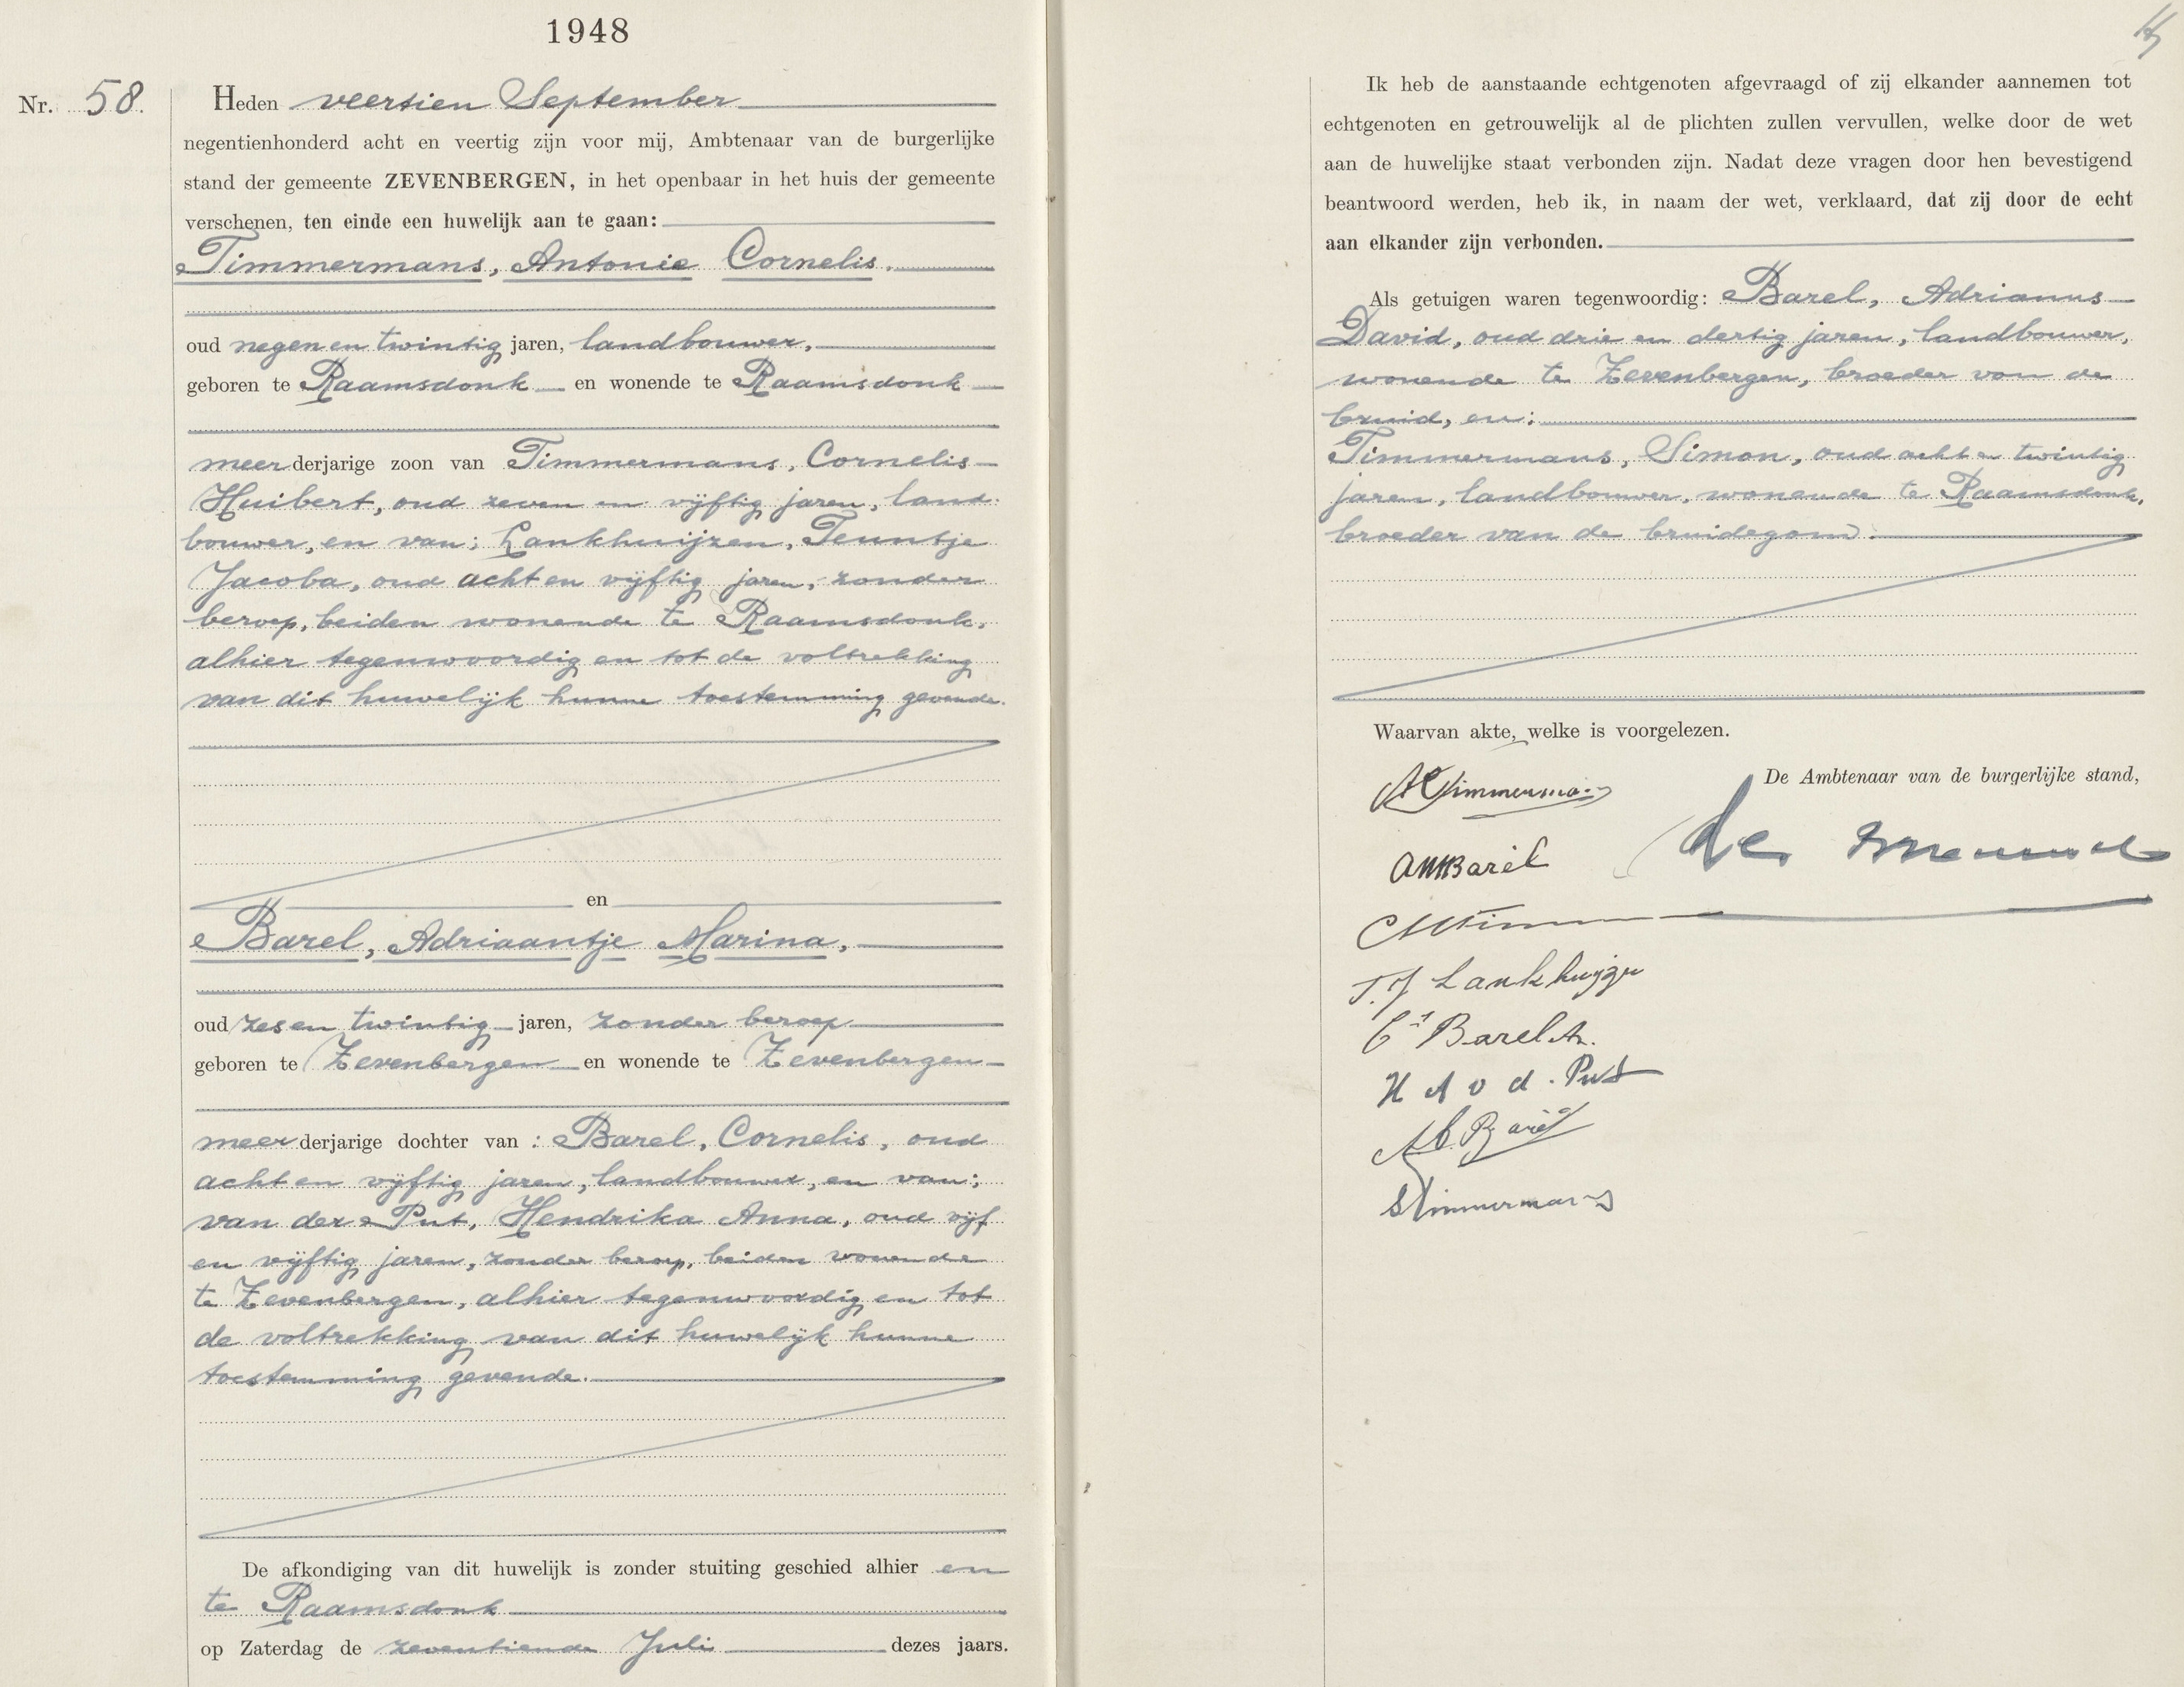 1948
Nr. 58.
Heden veertien September
negentienhonderd acht en veertig zijn voor mij, Ambtenaar van de burgerlijke
stand der gemeente ZEVENBERGEN, in het openbaar in het huis der gemeente
verschenen, ten einde een huwelijk aan te gaan:
Timmermans, Antonie Cornelis.
oud negen en twintig jaren, landbouwer,
geboren te Raamsdonk en wonende te Raamsdonk
meerderjarige zoon van Timmermans, Cornelis
Huibert, oud zeven en vijftig jaren, land-
bouwer, en van; Lankhuijzen, Teuntje
Jacoba, oud acht en vijftig jaren, zonder
beroep, beiden wonende te Raamsdonk,
alhier tegenwoordig en tot de voltrekking
van dit huwelijk hunne toestemming gevende.
en
Barel, Adriaantje Marina,
oud zes en twintig jaren, zonder beroep
geboren te Zevenbergen en wonende te Zevenbergen
meerderjarige dochter van : Barel, Cornelis, oud
acht en vijftig jaren, landbouwer, en van;
van der Put, Hendrika Anna, oud vijf
en vijftig jaren, zonder beroep, beiden wonende
te Zevenbergen, alhier tegenwoordig en tot
de voltrekking van dit huwelijk hunne
toestemming gevende.
De afkondiging van dit huwelijk is zonder stuiting geschied alhier en
te Raamsdonk
op Zaterdag de zeventiende Juli dezes jaars.
Ik heb de aanstaande echtgenoten afgevraagd of zij elkander aannemen tot
echtgenoten en getrouwelijk al de plichten zullen vervullen, welke door de wet
aan de huwelijke staat verbonden zijn. Nadat deze vragen door hen bevestigend
beantwoord werden, heb ik, in naam der wet, verklaard, dat zij door de echt
aan elkander zijn verbonden.
Als getuigen waren tegenwoordig: Barel, Adrianus
David, oud drie en dertig jaren, landbouwer,
wonende te Zevenbergen, broeder van de
bruid, en;
Timmermans, Simon, oud acht en twintig
jaren, landbouwer, wonende te Raamsdonk,
broeder van de bruidegom.
Waarvan akte, welke is voorgelezen.
De Ambtenaar van de burgerlijke stand,
ACTimmermans
AMBarel
T. J Lankhuijzen
Cs Barel Az.
H A v d. Put
STimmermans